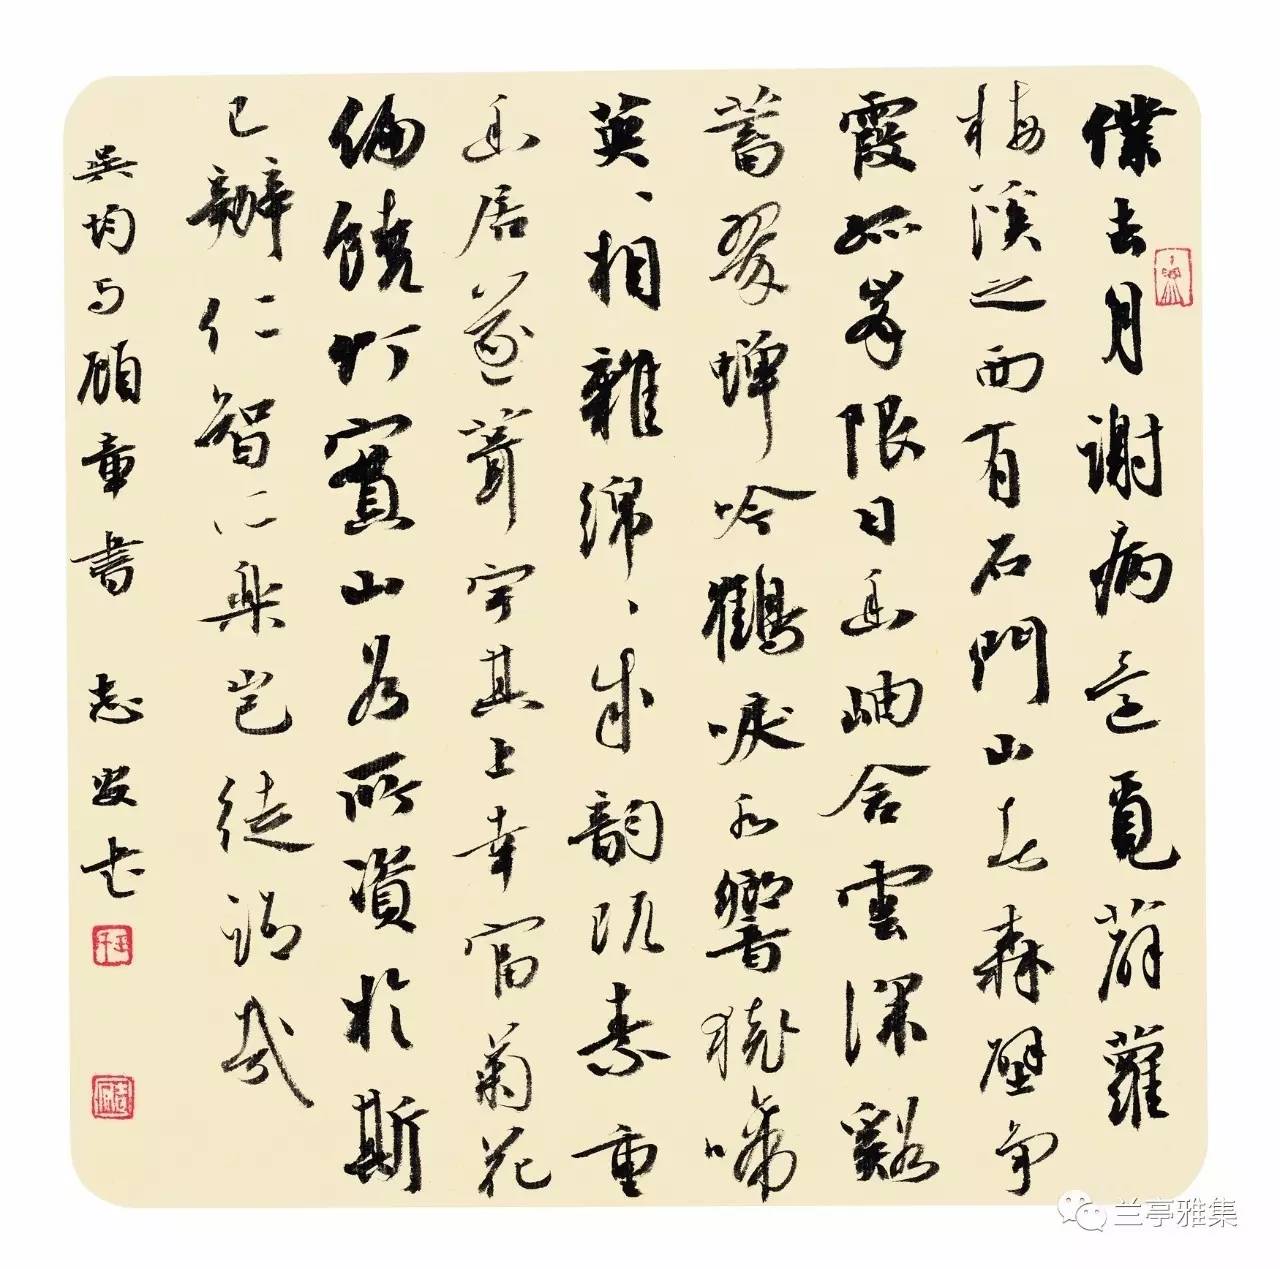 僕去月謝病還覓薜蘿
梅溪之西有石門山者森壁爭
霞孤峯限日幽岫含雲深谿
蓄翠蟬吟鶴唳水響猿啼
英、相雜綿、成韻既素重
幽居遂葺宇其上幸富菊花
偏饒竹實山谷所資於斯
已辦仁智所樂豈徒語哉
吳均与顧章書 志安书
兰亭雅集